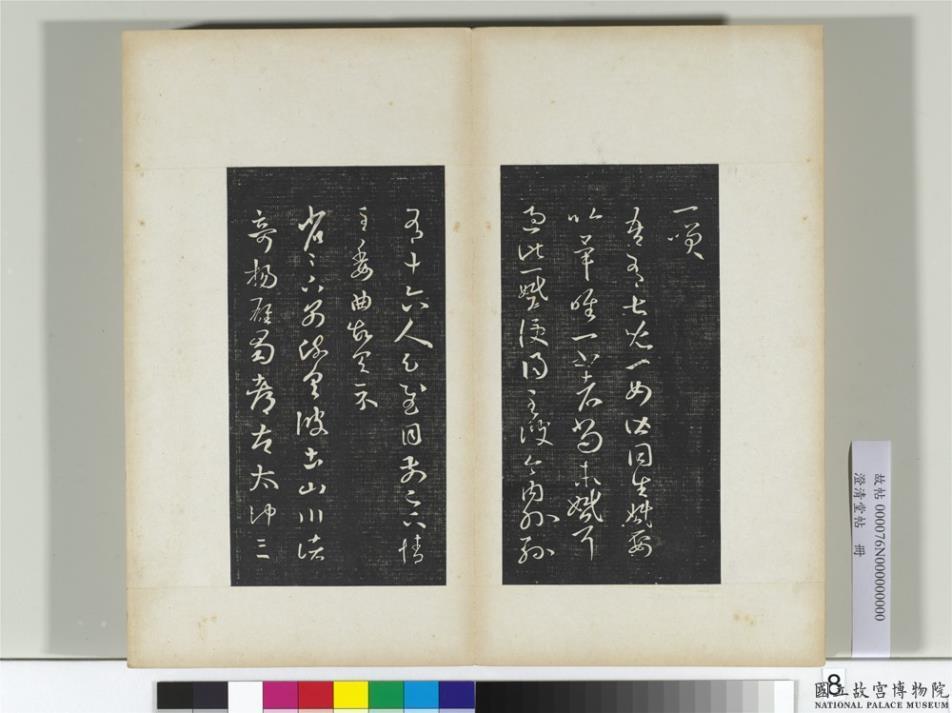 一咲
吾有七兒一女皆同生婚娶
以畢唯一小者尚未婚耳
過此一婚便得至彼今內外孫
有十六人足慰目前足下情
至委曲故具示
省足下別疏具彼土山川諸
奇揚雄蜀都左太沖三
故帖 000076N000000000
澄清堂帖 冊
8
國立故宮博物院
NATIONAL PALACE MUSEUM